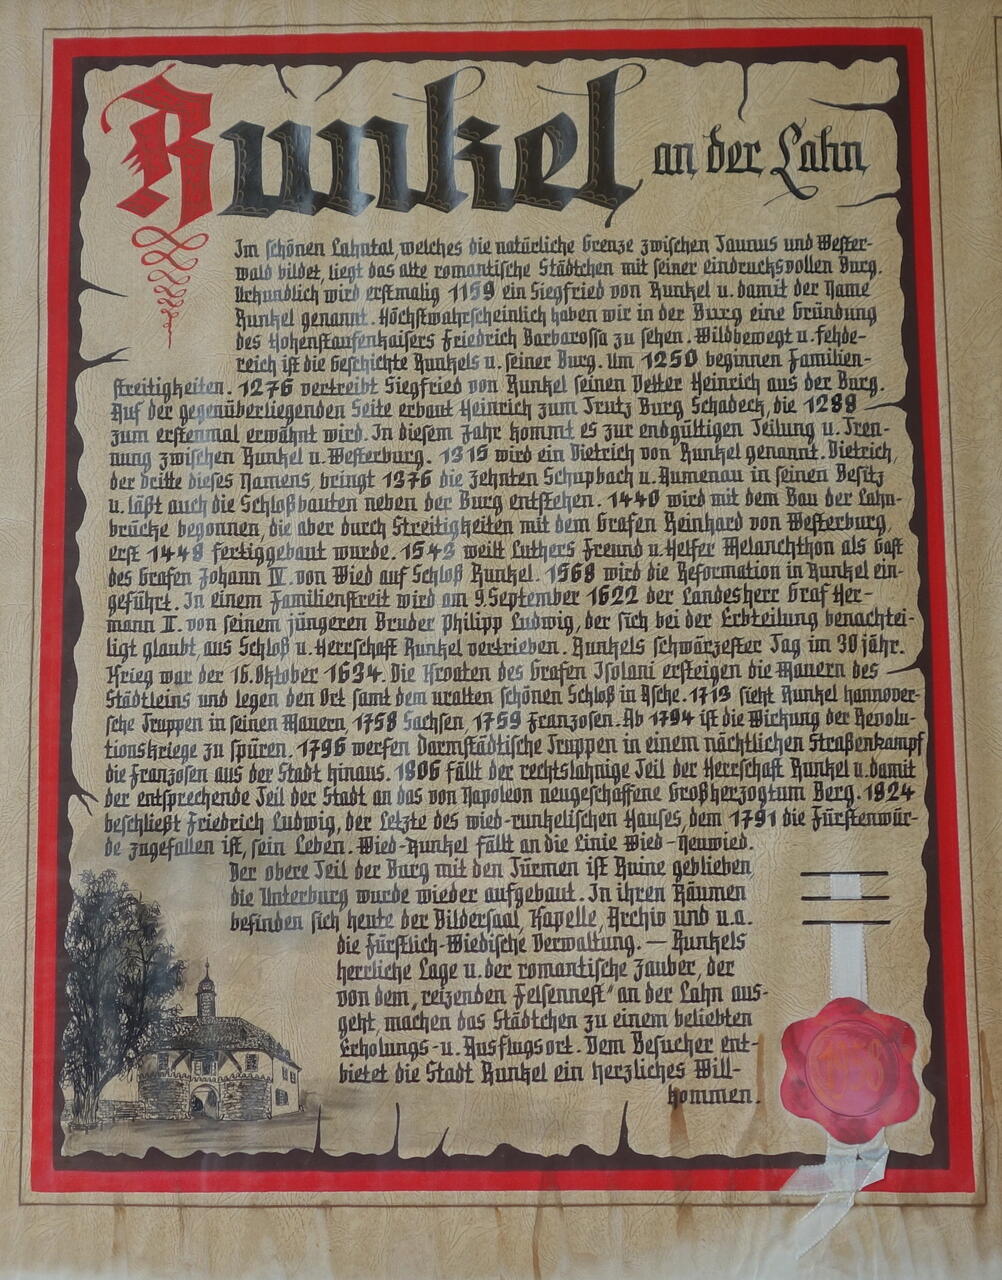 Runkel an der Lahn
Im schönen Lahntal, welches die natürliche Grenze zwischen Taunus und Wester-
wald bildet, liegt das alte romantische Städtchen mit seiner eindrucksvollen Burg.
Urkundlich wird erstmalig 1159 ein Siegfried von Runkel u. damit der Name
Runkel genannt. Höchstwahrscheinlich haben wir in der Burg eine Gründung
des Hohenstaufenkaisers Friedrich Barbarossa zu sehen. Wildbewegt u. fehde-
reich ist die Geschichte Runkels u. seiner Burg. Um 1250 beginnen Familien-
streitigkeiten. 1276 vertreibt Siegfried von Runkel seinen Vetter Heinrich aus der Burg.
Auf der gegenüberliegenden Seite erbaut Heinrich zum Trutz Burg Schadeck, die 1288
zum erstenmal erwähnt wird. In diesem Jahr kommt es zur endgültigen Teilung u. Tren-
nung zwischen Runkel u. Westerburg. 1315 wird ein Dietrich von Runkel genannt. Dietrich,
der dritte dieses Namens, bringt 1376 die Zehnten Schupbach u. Aumenau in seinen Besitz
u. läßt auch die Schloßbauten neben der Burg entstehen. 1440 wird mit dem Bau der Lahn-
brücke begonnen, die aber durch Streitigkeiten mit dem Grafen Reinhard von Westerburg,
erst 1448 fertiggebaut wurde. 1543 weilt Luthers Freund u. Helfer Melanchthon als Gast
des Grafen Johann IV. von Wied auf Schloß Runkel. 1568 wird die Reformation in Runkel ein-
geführt. In einem Familienstreit wird am 9. September 1622 der Landesherr Graf Her-
mann II. von seinem jüngeren Bruder Philipp Ludwig, der sich bei der Erbteilung benachtei-
ligt glaubt, aus Schloß u. Herrschaft Runkel vertrieben. Runkels schwärzester Tag im 30 jähr.
Krieg war der 16. Oktober 1634. Die Kroaten des Grafen Isolani ersteigen die Mauern des
Städtleins und legen den Ort samt dem uralten schönen Schloß in Asche. 1713 sieht Runkel hannover-
sche Truppen in seinen Mauern, 1758 Sachsen, 1759 Franzosen. Ab 1794 ist die Wirkung der Revolu-
tionskriege zu spüren. 1796 werfen Darmstädtische Truppen in einem nächtlichen Straßenkampf
die Franzosen aus der Stadt hinaus. 1806 fällt der rechtslahnige Teil der Herrschaft Runkel u. damit
der entsprechende Teil der Stadt an das von Napoleon neugeschaffene Großherzogtum Berg. 1824
beschließt Friedrich Ludwig, der Letzte des wied-runkelischen Hauses, dem 1791 die Fürstenwür-
de zugefallen ist, sein Leben. Wied-Runkel fällt an die Linie Wied-Neuwied.
Der obere Teil der Burg mit den Türmen ist Ruine geblieben,
die Unterburg wurde wieder aufgebaut. In ihren Räumen
befinden sich heute der Bildersaal, Kapelle, Archiv und u.a.
die Fürstlich-Wiedische Verwaltung. — Runkels
herrliche Lage u. der romantische Zauber, der
von dem „reizenden Felsennest" an der Lahn aus-
geht, machen das Städtchen zu einem beliebten
Erholungs- u. Ausflugsort. Dem Besucher ent-
bietet die Stadt Runkel ein herzliches Will-
kommen.